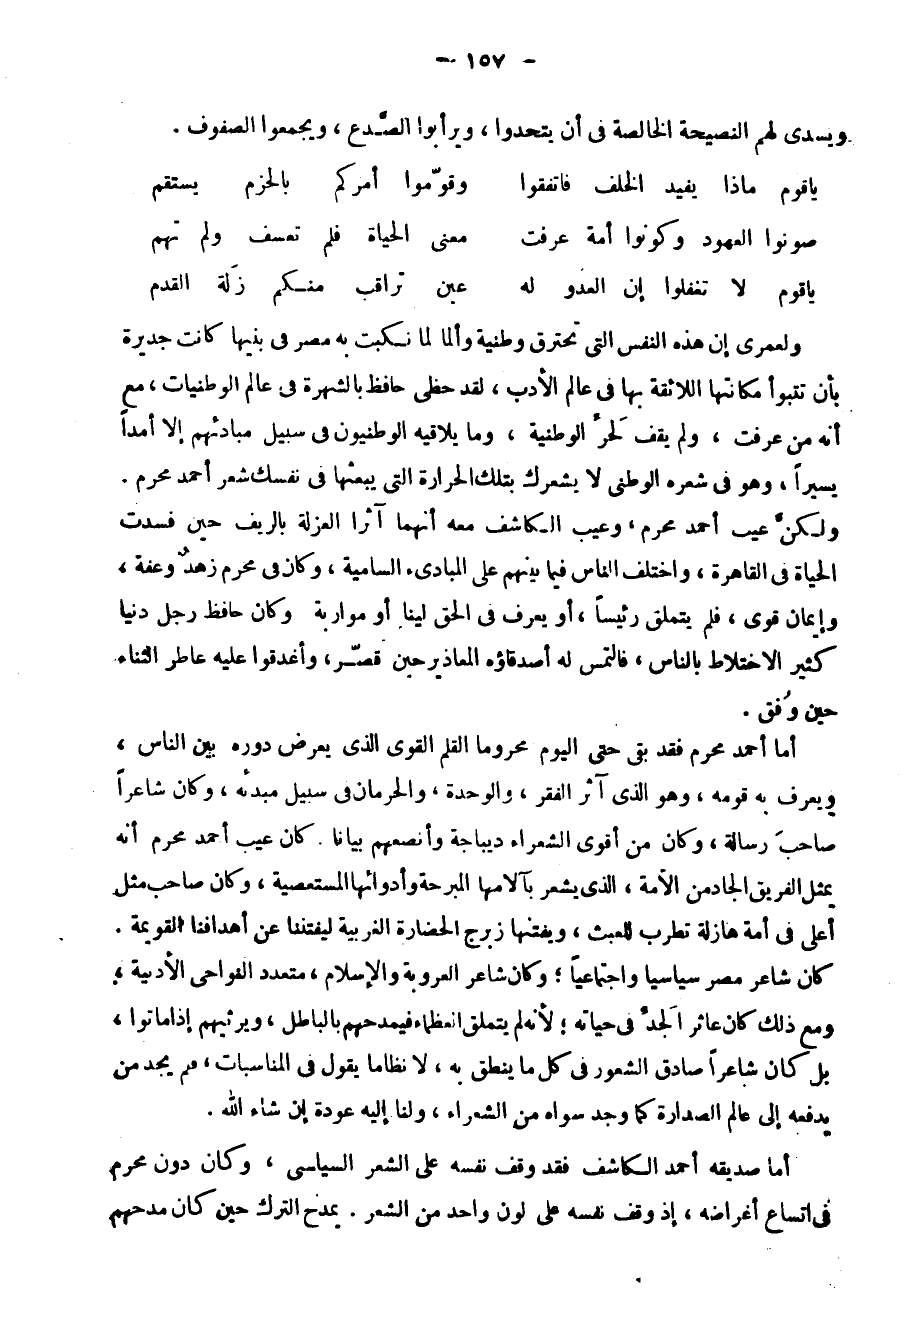 - ١٥٧ -
ويسدى لهم النصيحة الخالصة فى أن يتحدوا ، ويرأبوا الصَّدع ، ويجمعوا الصفوف .
ياقوم ماذا يفيد الخلف فاتفقوا وقوّموا أمركم بالحزم يستقم
صونوا العهود وكونوا أمة عرفت معنى الحياة فلم تعسف ولم تهم
ياقوم لا تغفلوا إن العدو له عين تراقب منكم زَلة القدم
ولعمرى إن هذه النفس التى تحترق وطنية وألما لما نكبت به مصر فى بنيها كانت جديرة
بأن تتبوأ مكانتها اللائقة بها فى عالم الأدب ، لقد حظى حافظ بالشهرة فى عالم الوطنيات ، مع
أنه من عرفت ، ولم يقف لحرِّ الوطنية ، وما يلاقيه الوطنيون فى سبيل مبادئهم إلا أمداً
يسيراً ، وهو فى شعره الوطنى لا يشعرك بتلك الحرارة التى يبعثها فى نفسك شعر أحمد محرم .
ولكنَّ عيب أحمد محرم ، وعيب الكاشف معه أنهما آثرا العزلة بالريف حين فسدت
الحياة فى القاهرة ، واختلف الناس فيما بينهم على المبادىء السامية ، وكان فى محرم زهدٌ وعفة ،
وإيمان قوى ، فلم يتملق رئيساً ، أو يعرف فى الحق لينا أو مواربة وكان حافظ رجل دنيا
كثير الاختلاط بالناس ، فالتمس له أصدقاؤه المعاذير حين قصّر ، وأغدقوا عليه عاطر الثناء
حين وُفق .
أما أحمد محرم فقد بقى حتى اليوم محروما القلم القوى الذى يعرض دوره بين الناس ،
ويعرف به قومه ، وهو الذى آثر الفقر ، والوحدة ، والحرمان فى سبيل مبدئه ، وكان شاعراً
صاحبَ رسالة ، وكان من أقوى الشعراء ديباجة وأنصعهم بيانا . كان عيب أحمد محرم أنه
يمثل الفريق الجاد من الأمة ، الذى يشعر بآلامها المبرحة وأدوائها المستعصية ، وكان صاحب مثل
أعلى فى أمة هازلة تطرب للعبث ، ويفتنها زبرج الحضارة الغربية ليفتننا عن أهدافنا القويمة .
كان شاعر مصر سياسيا واجتماعياً ؛ وكان شاعر العروبة والإسلام ، متعدد النواحى الأدبية ،
ومع ذلك كان عاثر الجدِّ فى حياته ؛ لأنه لم يتملق العظماء فيمدحهم بالباطل ، ويرثيهم إذا ماتوا ،
بل كان شاعراً صادق الشعور فى كل ما ينطق به ، لا نظاما يقول فى المناسبات ، فلم يجد من
يدفعه إلى عالم الصدارة كما وجد سواه من الشعراء ، ولنا إليه عودة إن شاء الله .
أما صديقه أحمد الكاشف فقد وقف نفسه على الشعر السياسى ، وكان دون محرم
فى اتساع أغراضه ، إذ وقف نفسه على لون واحد من الشعر . يمدح الترك حين كان مدحهم